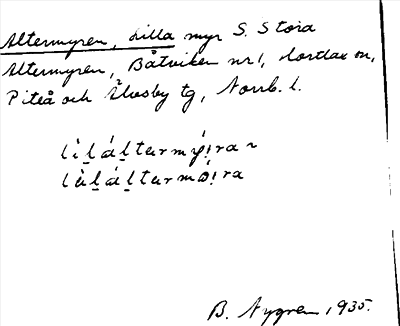 Altermyren, Lilla myr S. Stora
Altermyren, Båtviken nr 1, Hortlax sn,
Piteå och Älvsby tg, Norrb. l.
lìl̠ál̠tərmý:ra ~
lìl̠ál̠tərmø:ra
B. Nygren, 1935.